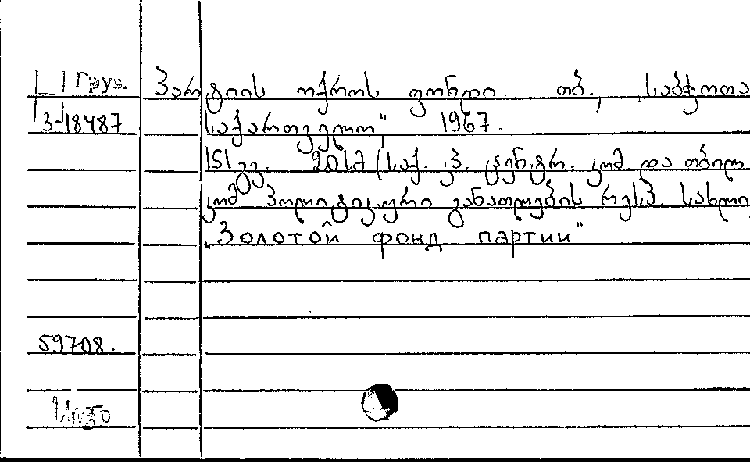 Груз. პარტიის ოქროს ფონდი. თბ., „საბჭოთა
3-18487 საქართველო", 1967.
151 გვ. (საქ. კ. პ. ცენტრ. კომ. და თბილ.
კომ. პოლიტიკური განათლების რესპ. სახლი
„Золотой фонд партии"
59708.